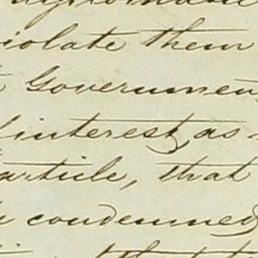 violate them
Government
interest, as
article, that
condemned